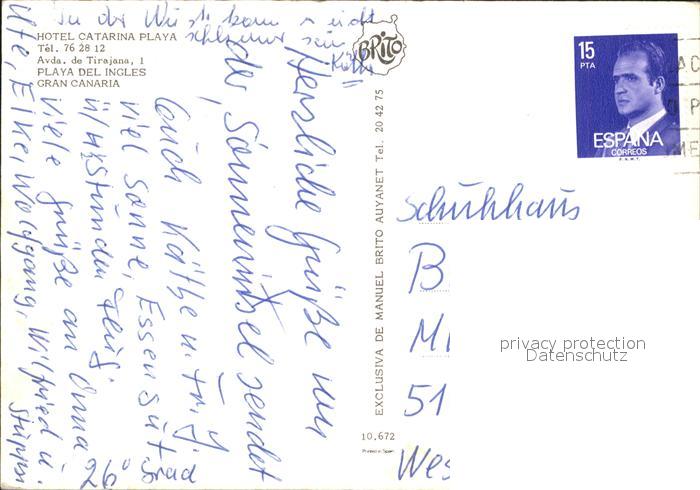 HOTEL CATARINA PLAYA
Tél. 76 28 12
Avda. de Tirajana, 1
PLAYA DEL INGLES
GRAN CANARIA
BRITO
15
PTA
ESPAÑA
CORREOS
F.N.M.T.
Herzliche Grüße von
der Sonneninsel sendet
Euch Käthe u.
viel Sonne, Essen gut
4 1/2 Stunden Flug. 26° Grad
viele Grüße an Oma
Ute, Eike, Wolfgang, Wilfried u.
In der kann
schlimmer sein
EXCLUSIVA DE MANUEL BRITO AUYANET Tel. 20 42 75
10.672
Printed in Spain
Schuhhaus
B
M
51
Wes
privacy protection
Datenschutz